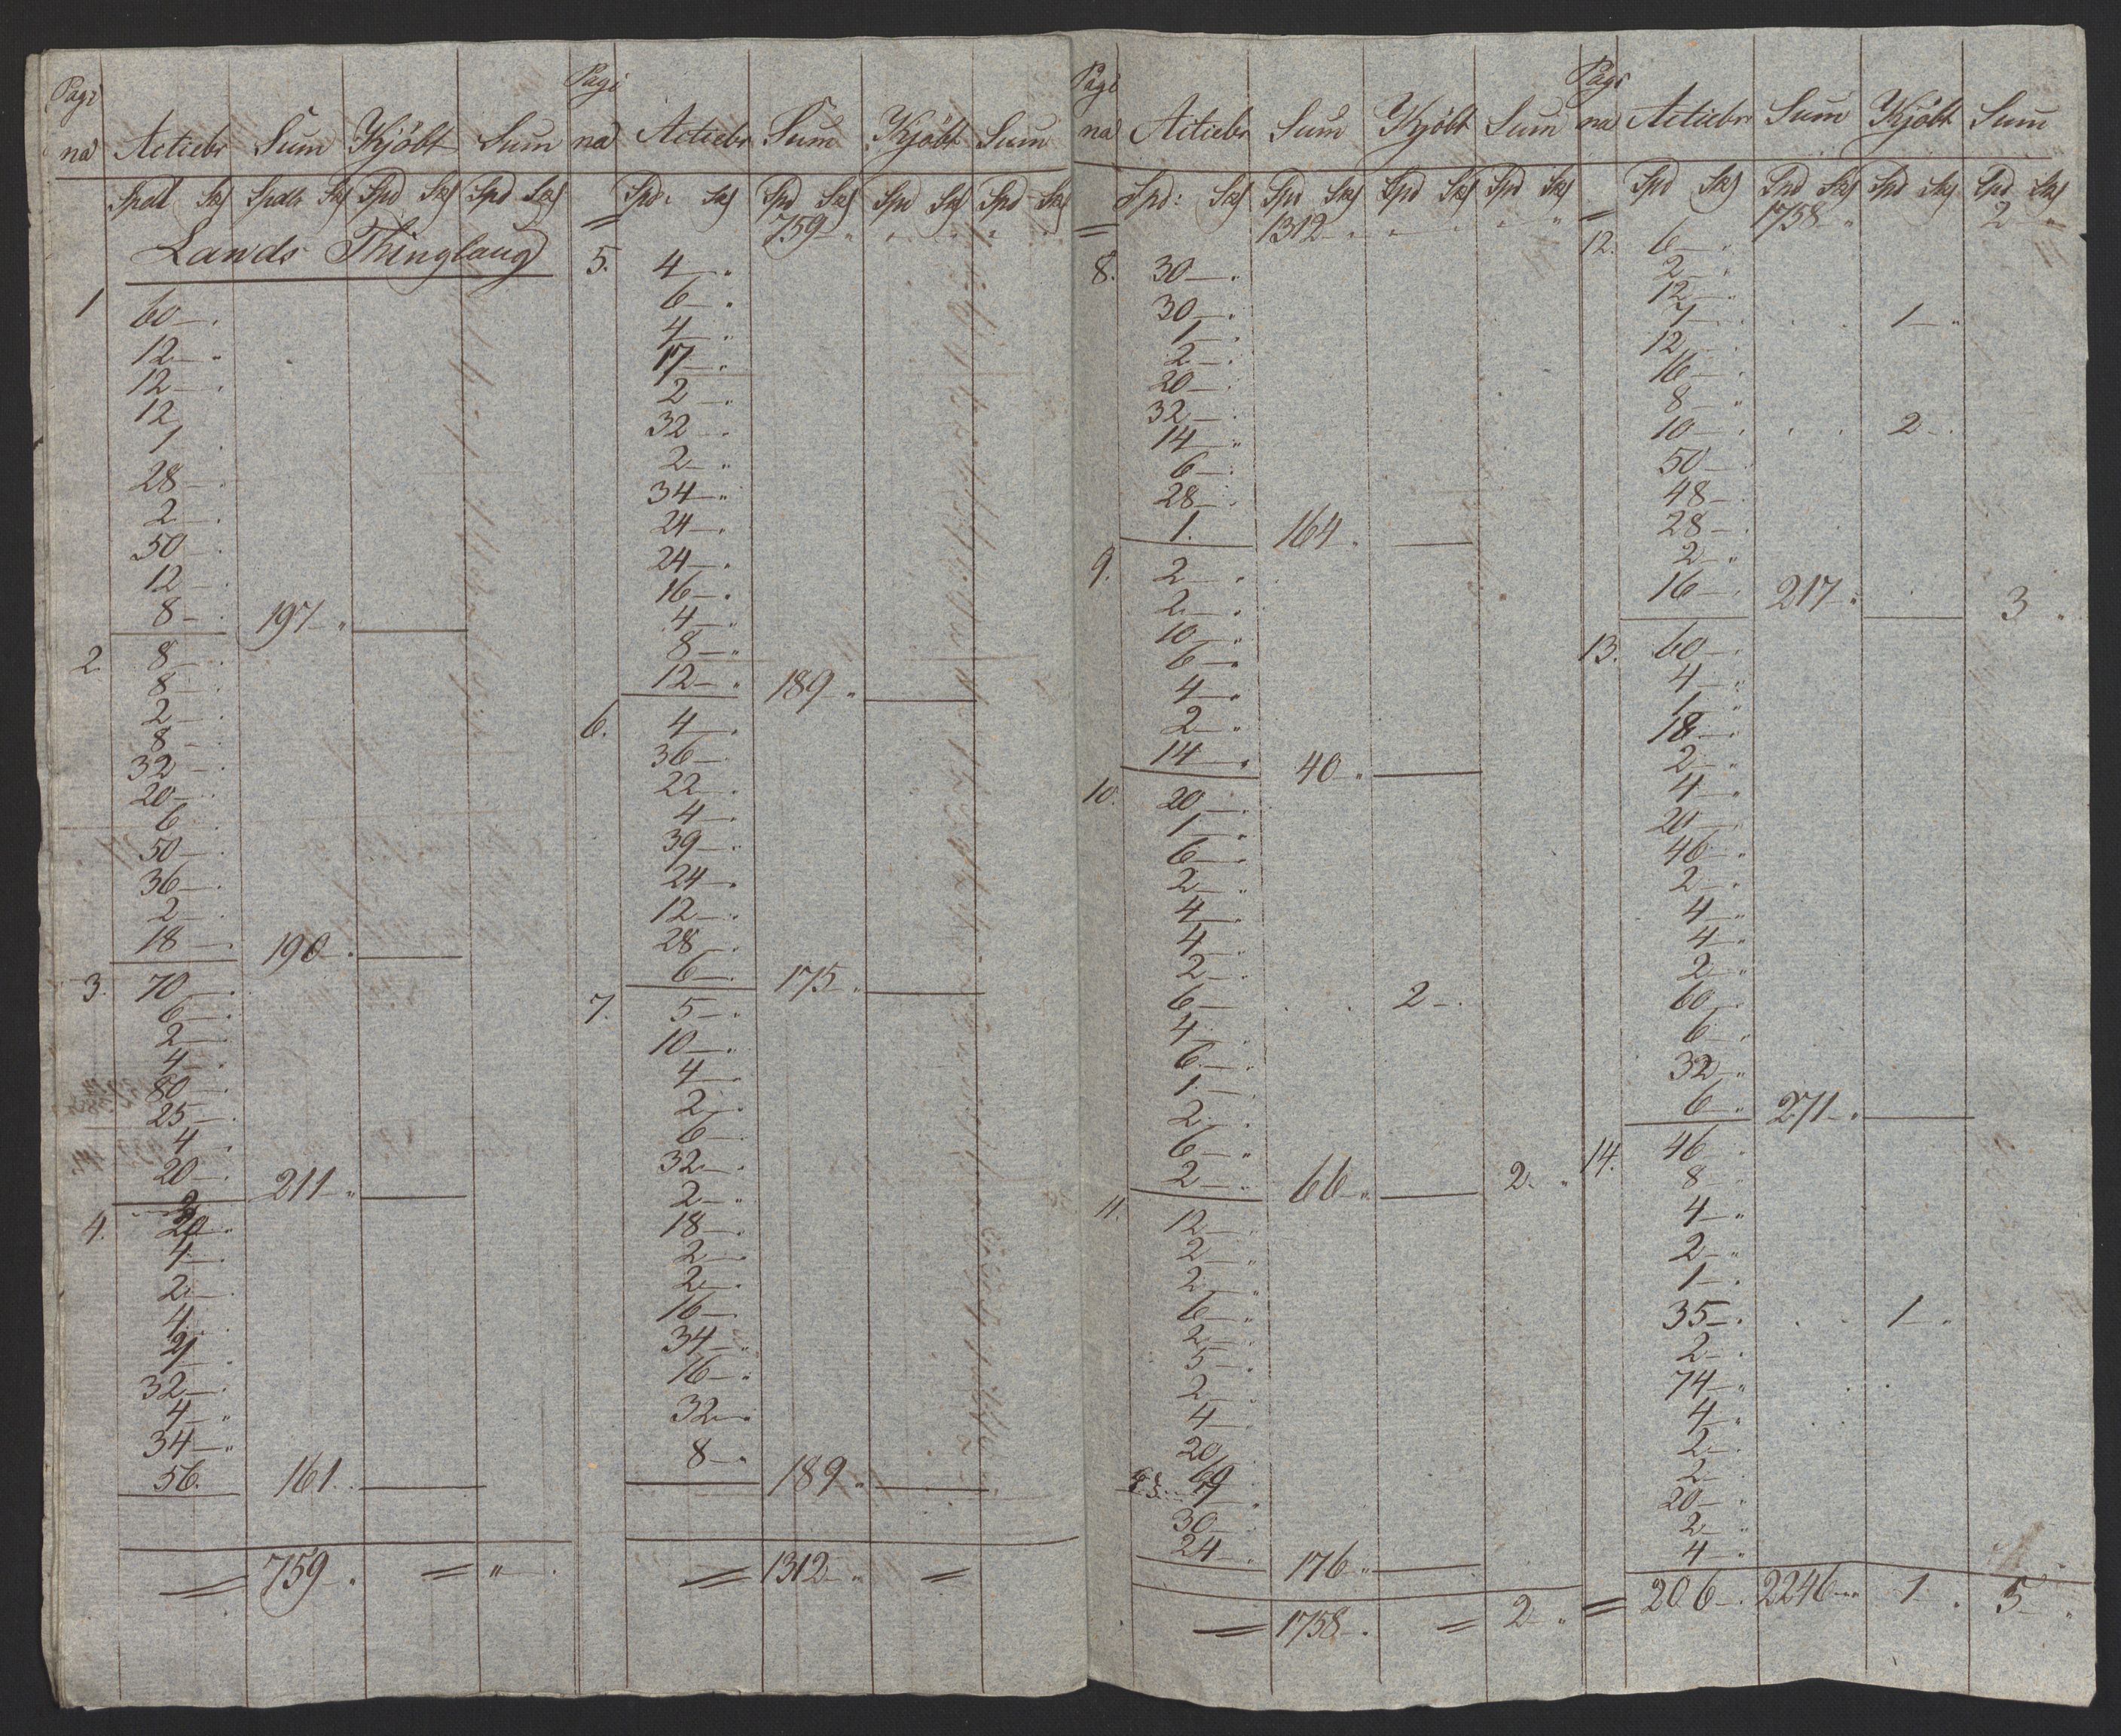 Pagi
na Actiebr Sum Kjöbt Sum
Spdl Sk Spdlr Sk Spd Sk Spd Sk
Lands Thinglaug
1 60 — "
12 — "
12 — "
12
1
28 —
2 —
50 —
12 —
8 — 197 — "
2. 8 —
8 —
2 —
8 —
32 —
20 —
6
50 —
36 —
2 —
18 — 190 "
3. 70 —
6 —
2 —
4 —
80 —
25 —
4
20 — 211 — "
4. 20 —
4 —
2 —
4
32 —
4 — "
34 — "
56. 161.
759 — " = "
Pagi
na Actiebr Sum Kjöbt Sum
Spd: Sk Spd Sk Spd Sk Spd Sk
= 759 — " " " " "
5. 4 — "
6 — "
4 — "
17 — "
2 — "
32 —
2 — "
34 — "
24 —
24 —
16 —
4 —
8 — "
12 — " 189 "
6. 4 —
36 —
22 —
4 —
39 — "
24 —
12 — "
28 —
6 — 175 "
7. 5 — "
10 —
4 —
2 —
6 —
32 —
2 — "
18 —
2 —
2 —
16 —
34 — "
16 —
32 —
8 — 189 "
= 1312 — " =
Pagi
na Actiebr Sum Kjöbt Sum
Spd: Sk Spd Sk Spd Sk Spd Sk
= 1312 " " " " "
8. 30 — "
30 — "
1 —
2 —
20 —
32 —
14 — "
6 —
28 —
1. 164 "
9. 2 — "
2 — "
10 — "
6 —
4 —
2 — "
14 — " 40 "
10. 20 —
1 — "
6 —
2 — "
4 —
4 — "
2 — "
6 — 2 —
4 — "
6 —
1 —
2 —
6 —
2 — 66 " 2. "
11. 12 —
2 — "
2 — "
6 — "
2 —
5 — "
2 —
4 —
20
69
30 —
24 — 176 "
= 1758 — " = 2 "
Pagi
na Actiebr Sum Kjöbt Sum
Spd Sk Spd Sk Spd Sk Spd Sk
= 1758 — " 2 "
12. 6 — "
2 — "
12 —
1 — 1 — "
12 —
16 —
8 — "
10 — 2 —
50 —
48 —
28 —
2 — "
16 — 217 — " 3 "
13. 60 —
4 — "
1 — "
18 —
2 — "
4 — "
20 —
46 — "
2 — "
4 — "
4 — "
2 — "
60 —
6 "
32 — "
6 " 271 — "
14. 46
8 —
4 — "
2 — "
1 —
35 — 1 "
2 —
74 — "
4 — "
2 —
2 —
20 — "
2 — "
4 — "
= 206 — 2246 — " 1 " 5 "